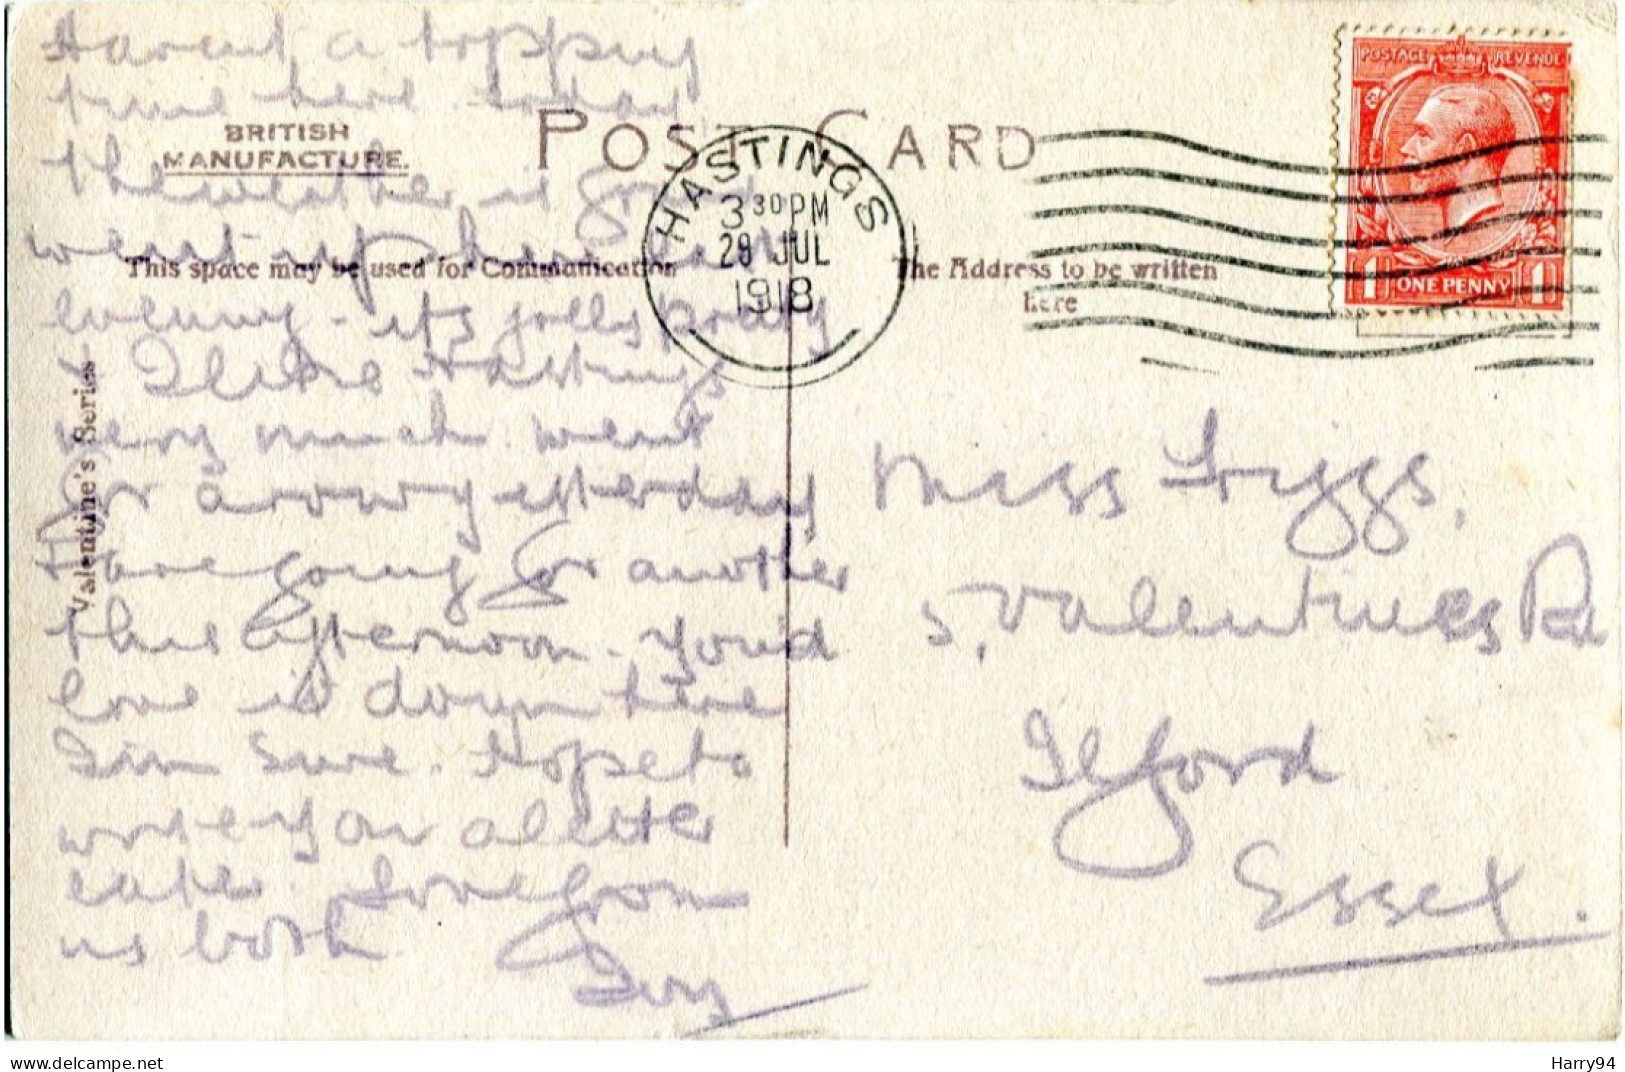 Havent a topping
time here today
the weather is good
went up here last
evening - it's jolly pretty
& I like Hastings
very much went
for a row yesterday
& are going for another
this afternoon. You'd
love it down here
I'm sure. Hope to
write you a letter
later. Love from
us both.
Ivy
BRITISH
MANUFACTURE.
POST CARD
This space may be used for Communication
The Address to be written
here
Valentine's Series
HASTINGS
3 30 PM
29 JUL
1918
POSTAGE REVENUE
1 ONE PENNY 1
Miss Friggs,
5, Valentines Rd
Ilford
Essex.
delcampe.net
Harry94